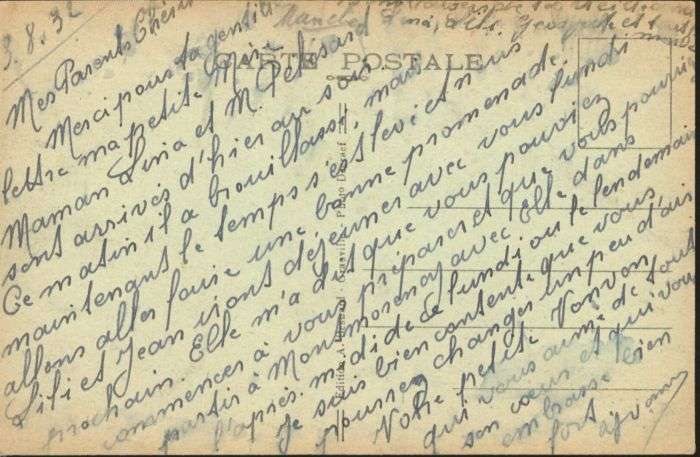 3.8.32
CARTE POSTALE
Mes Parents Chéris
Merci pour ta gentille
lettre ma petite Mimi
Maman Lina et M. Pelissard
sont arrivés d'hier au soir
Ce matin il a brouillassé, mais
maintenant le temps s'est levé et nous
allons aller faire une bonne promenade.
Lili et Jean iront déjeuner avec vous lundi
prochain. Elle m'a dit que vous pouviez
commencer à vous préparer et que vous pourriez
partir à Montmorency avec Elle dans
l'après midi de ce lundi ou le lendemain
Je suis bien contente que vous
pourrez changer un peu d'air
Votre petite Vonvon
qui vous aime de tout
son cœur et qui vous
embrasse bien
fort